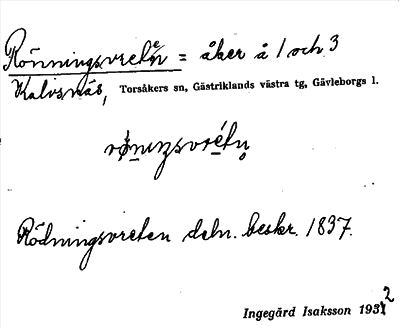 Rönningsvreten = åker å 1 och 3
Kalvsnäs, Torsåkers sn, Gästriklands västra tg, Gävleborgs l.
Rödningsvreten deln. beskr. 1837.
Ingegärd Isaksson 1932